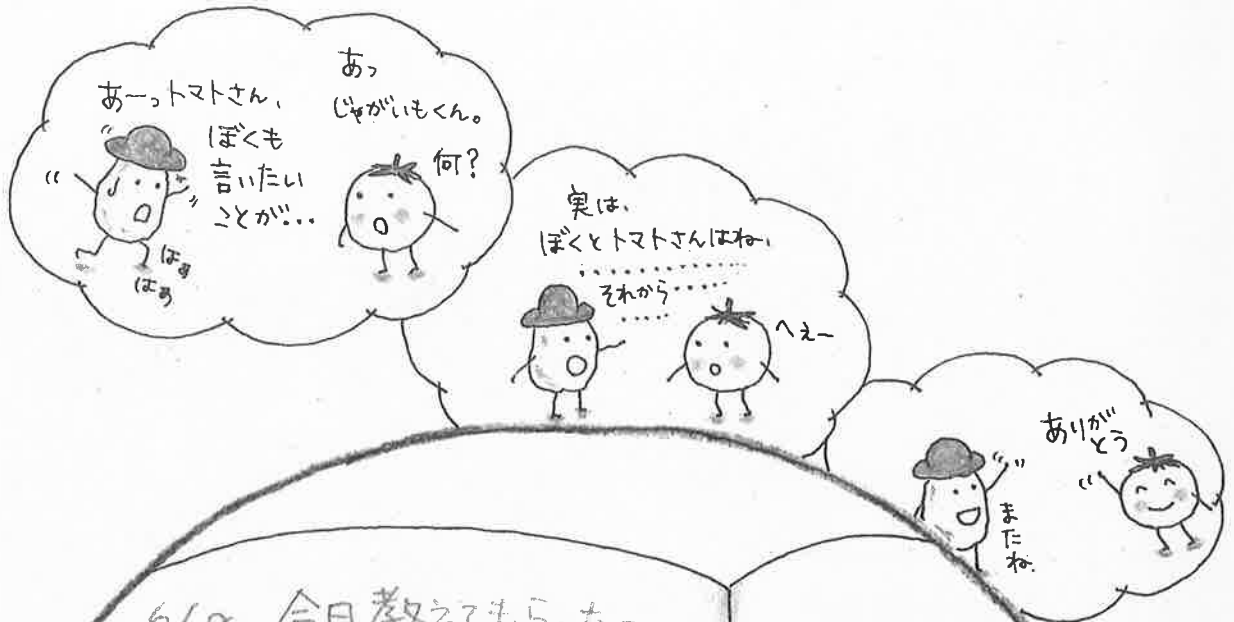 あーっトマトさん、
ぼくも
言いたい
ことが...
はぁ
はぁ
あっ
じゃがいもくん。
何?
実は、
ぼくとトマトさんはね、
それから
へえー
またね。
ありが
とう
今日教えてもらった